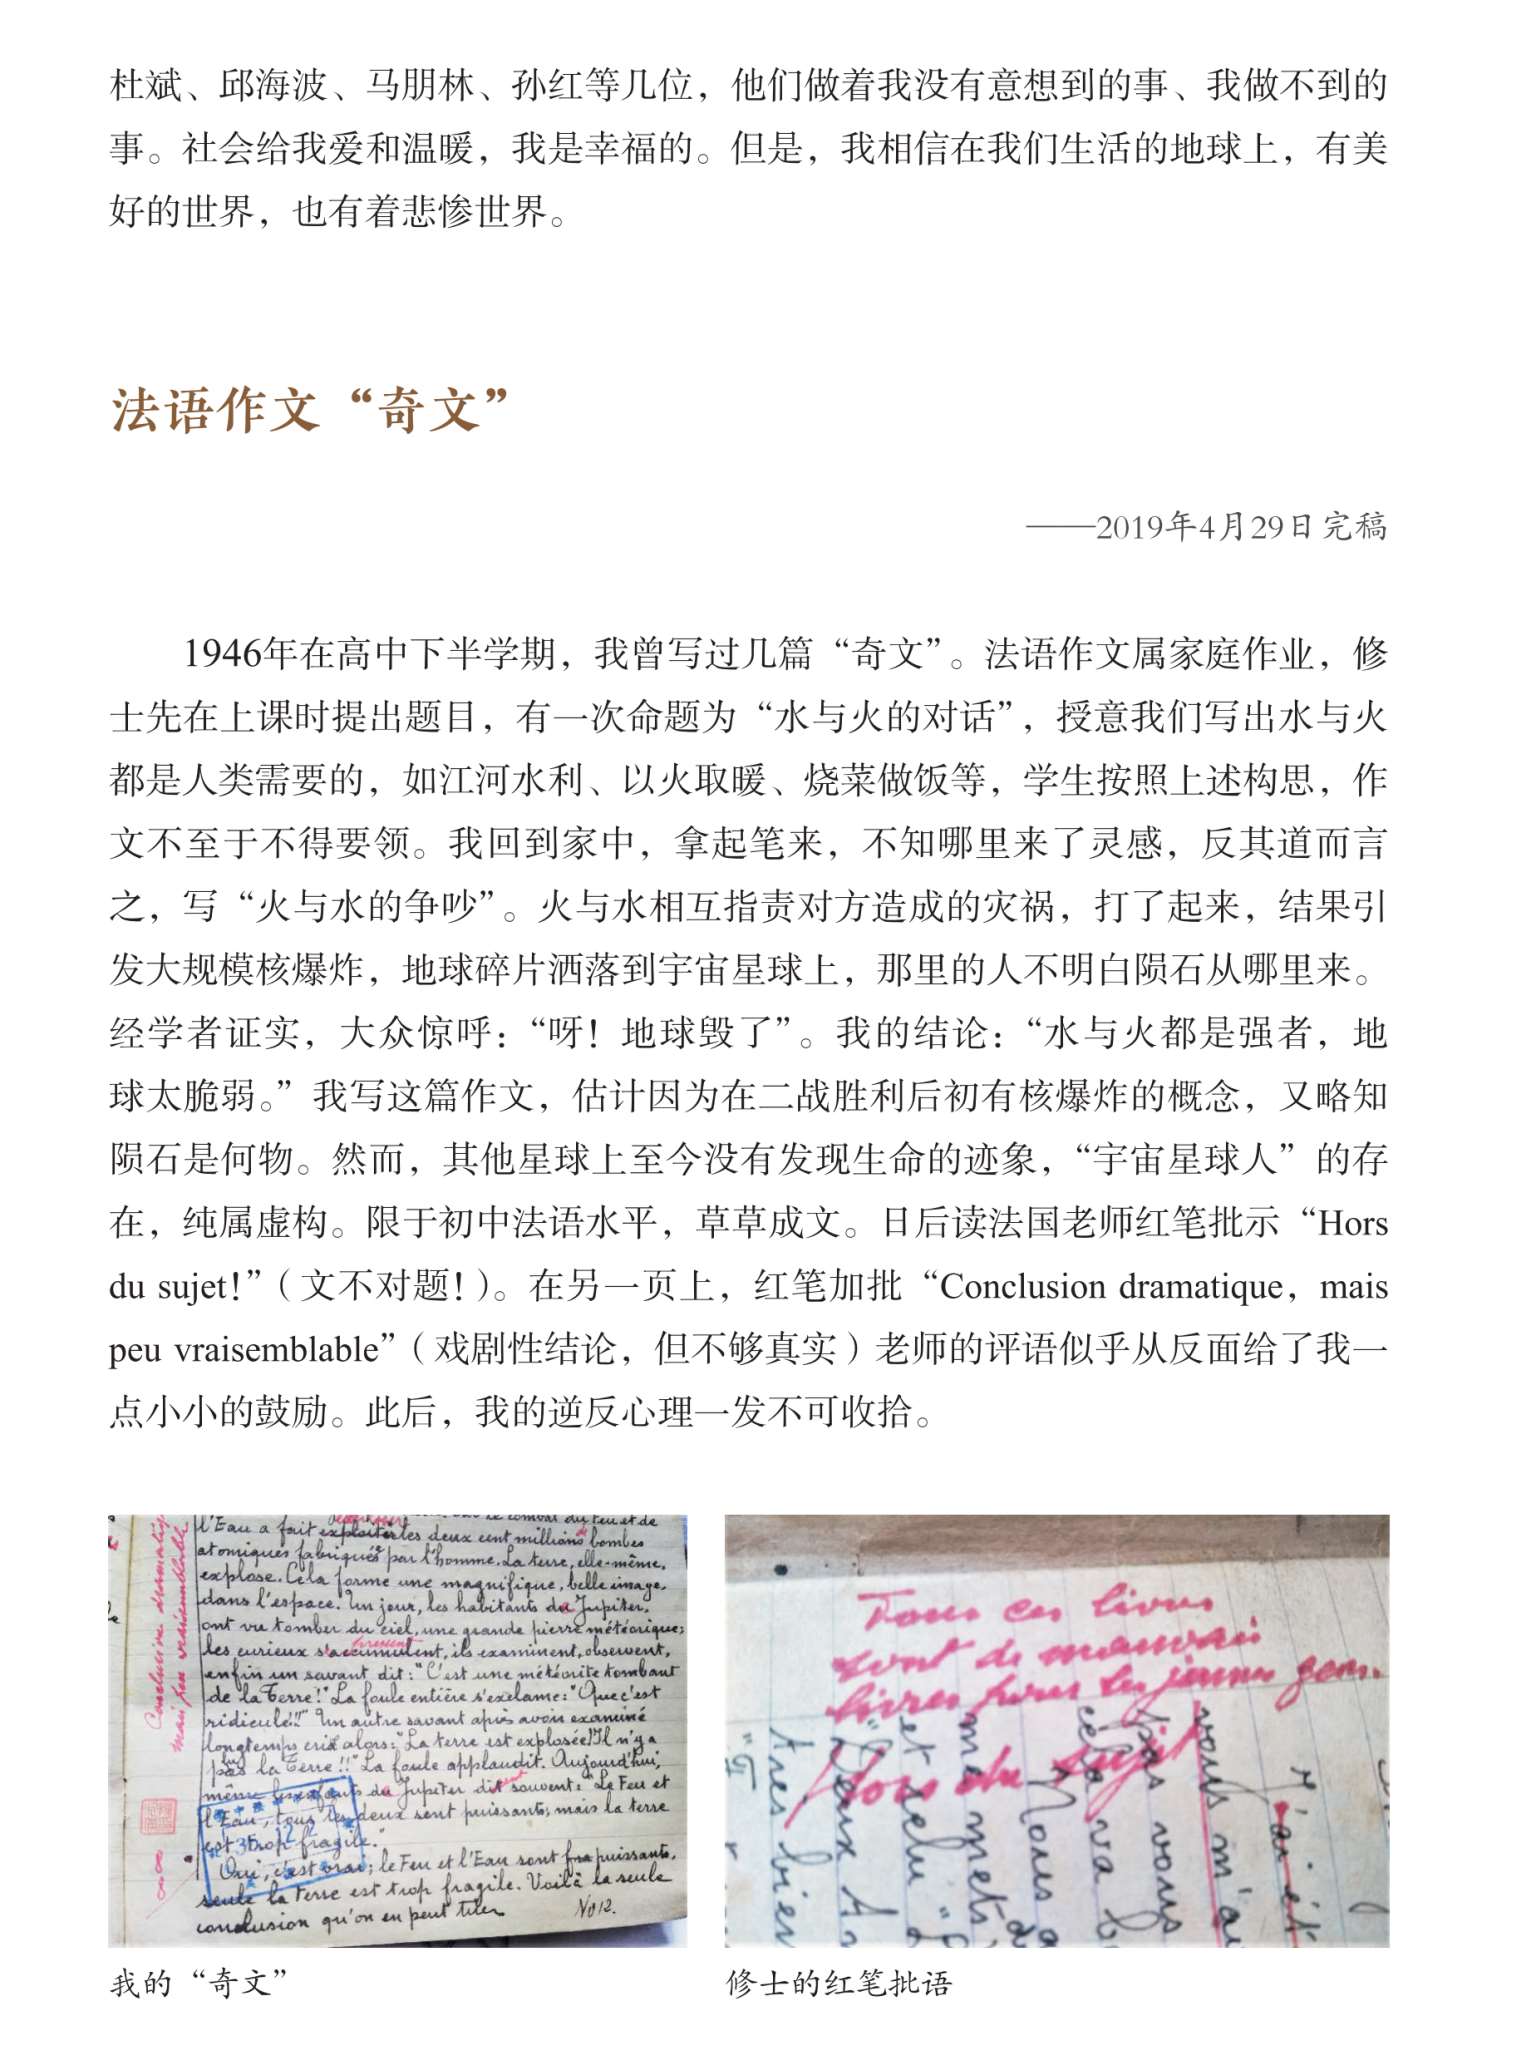 杜斌、邱海波、马朋林、孙红等几位，他们做着我没有意想到的事、我做不到的
事。社会给我爱和温暖，我是幸福的。但是，我相信在我们生活的地球上，有美
好的世界，也有着悲惨世界。
法语作文“奇文”
——2019年4月29日完稿
1946年在高中下半学期，我曾写过几篇“奇文”。法语作文属家庭作业，修
士先在上课时提出题目，有一次命题为“水与火的对话”，授意我们写出水与火
都是人类需要的，如江河水利、以火取暖、烧菜做饭等，学生按照上述构思，作
文不至于不得要领。我回到家中，拿起笔来，不知哪里来了灵感，反其道而言
之，写“火与水的争吵”。火与水相互指责对方造成的灾祸，打了起来，结果引
发大规模核爆炸，地球碎片洒落到宇宙星球上，那里的人不明白陨石从哪里来。
经学者证实，大众惊呼：“呀！地球毁了”。我的结论：“水与火都是强者，地
球太脆弱。”我写这篇作文，估计因为在二战胜利后初有核爆炸的概念，又略知
陨石是何物。然而，其他星球上至今没有发现生命的迹象，“宇宙星球人”的存
在，纯属虚构。限于初中法语水平，草草成文。日后读法国老师红笔批示“Hors
du sujet！”（文不对题！）。在另一页上，红笔加批“Conclusion dramatique，mais
peu vraisemblable”（戏剧性结论，但不够真实）老师的评语似乎从反面给了我一
点小小的鼓励。此后，我的逆反心理一发不可收拾。
le combat du Feu et de
l'Eau a fait exploiter les deux cent millions bombes
atomiques fabriqués par l'homme. La terre, elle-même,
explose. Cela forme une magnifique, belle image,
dans l'espace. Un jour, les habitants du Jupiter,
ont vu tomber du ciel, une grande pierre météorique;
les curieux s'accumulent, ils examinent, observent,
enfin un savant dit: "C'est une météorite tombant
de la Terre!" La foule entière s'exclame: "Que c'est
ridicule!!" Un autre savant après avoir examiné
longtemps cria alors: "La terre est explosée! Il n'y a
pas la Terre!!" La foule applaudit. Aujourd'hui,
même les enfants du Jupiter dit souvent: "Le Feu et
l'Eau, tous les deux sont puissants, mais la terre
est trop fragile."
Oui, c'est vrai; le Feu et l'Eau sont puissants,
seule la terre est trop fragile. Voilà la seule
conclusion qu'on en peut tiler
No 12.
Conclusion dramatique
mais peu vraisemblable
Tous ces livres
sont de mauvais
livres pour les jeunes gens.
Hors du sujet
我的“奇文”
修士的红笔批语